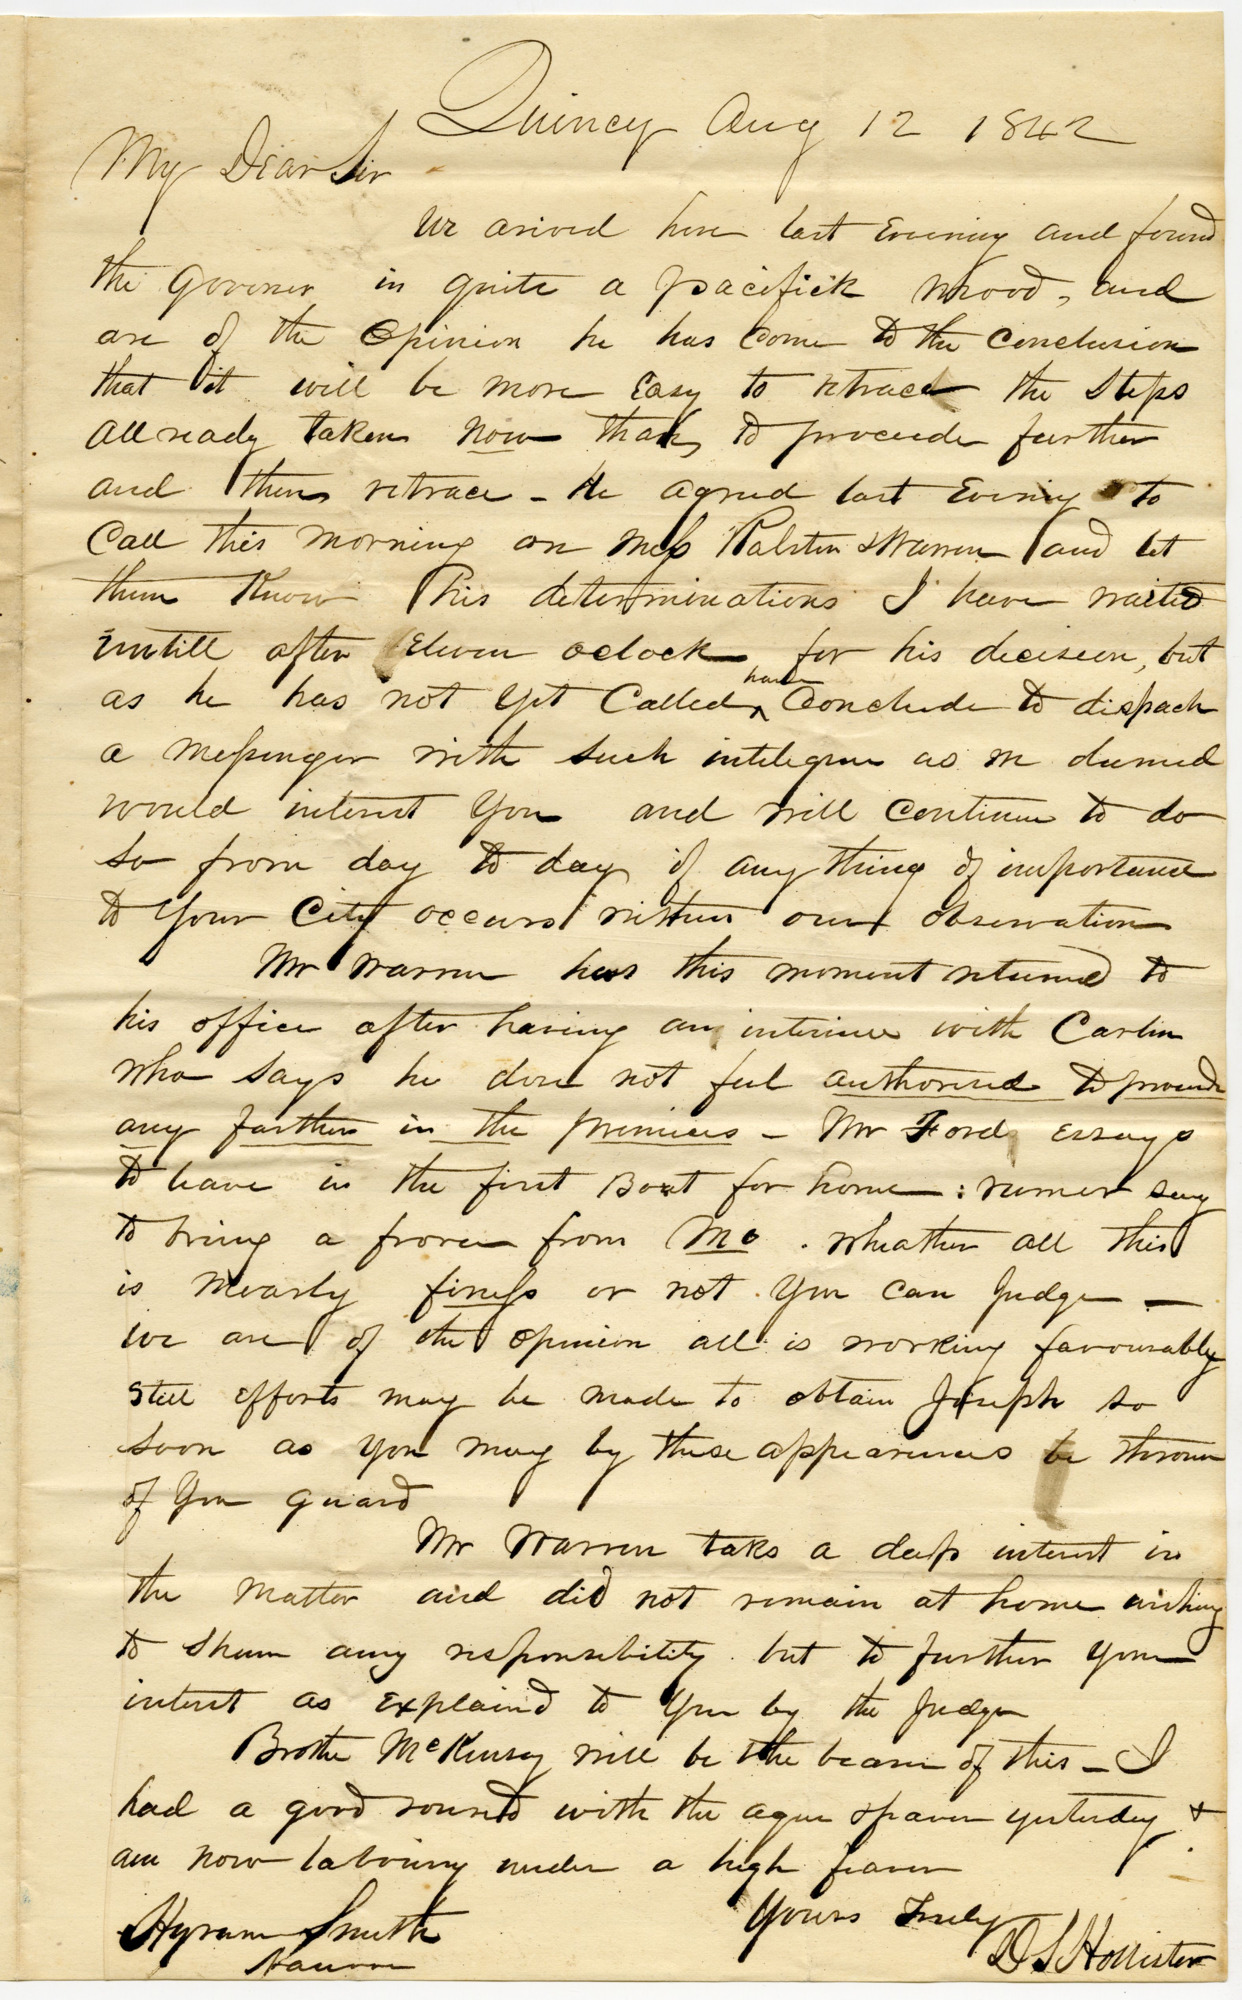 Quincy Aug 12 1842
My Dear Sir
We arived here last Evening and found
the Governer in quite a pacifick mood, and
are of the Opinion he has Come to the Conclusion
that it will be more Easy to retrace the Steps
Allready taken now than to proceede further
and then retrace - He agreed last Evening to
Call this morning on Mess Ralston & Warren and let
them Know his determinations I have waited
untill after Eleven oclock for his decision, but
as he has not yet Called have
^ Conclude to dispach
a Messinger with such inteligence as we deemed
would interest You and will Continue to do
so from day to day if any thing of importance
to Your City occurs within our observation
Mr Warren has this moment returned to
his office after having an interview with Carlin
who says he dose not feel authorised to proceede
any farther in the premices - Mr Ford essays
to leave in the first Boat for home : rumer say
to bring a from Mo . wheather all this
is Mearly finess or not You can Judge -
we are of the opinion all is working favourably
Still efforts may be made to obtain Joseph so
soon as you may by these appearences be thrown
of You guard
Mr Warren taks a deep interest in
the matter and did not remain at home wishing
to shun any responsibility but to further your
interest as explaind to You by the Judge
Brother McKinsey will be the bearer of this - I
had a good round with the ague & feaver yesterday &
am now labouring under a high feaver
Yours Truly
Hyram Smith
Nauvoo
D S Hollister